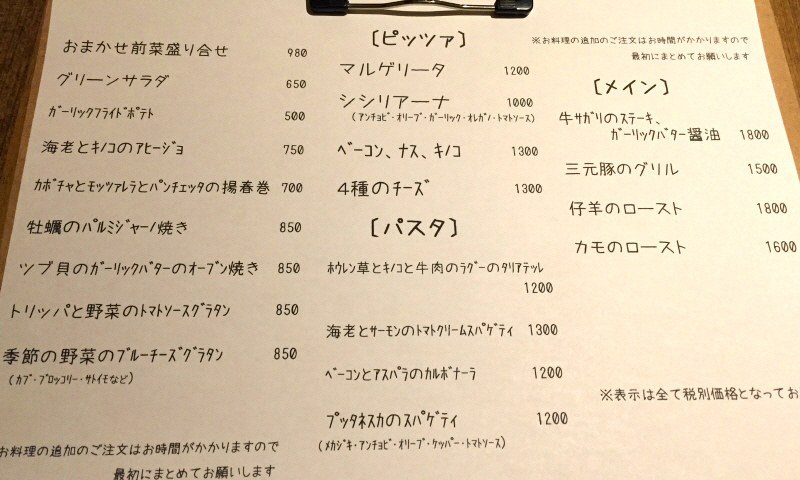 おまかせ前菜盛り合せ 980
グリーンサラダ 650
ガーリックフライドポテト 500
海老とキノコのアヒージョ 750
カボチャとモッツァレラとパンチェッタの揚春巻 700
牡蠣のパルミジャーノ焼き 850
ツブ貝のガーリックバターのオーブン焼き 850
トリッパと野菜のトマトソースグラタン 850
季節の野菜のブルーチーズグラタン 850
(カブ・ブロッコリー・サトイモなど)
お料理の追加のご注文はお時間がかかりますので
最初にまとめてお願いします
〔ピッツァ〕
マルゲリータ 1200
シシリアーナ 1000
(アンチョビ・オリーブ・ガーリック・オレガノ・トマトソース)
ベーコン、ナス、キノコ 1300
4種のチーズ 1300
〔パスタ〕
ホウレン草とキノコと牛肉のラグーのタリアテッレ
1200
海老とサーモンのトマトクリームスパゲティ 1300
ベーコンとアスパラのカルボナーラ 1200
プッタネスカのスパゲティ 1200
(メカジキ・アンチョビ・オリーブ・ケッパー・トマトソース)
※お料理の追加のご注文はお時間がかかりますので
最初にまとめてお願いします
〔メイン〕
牛サガリのステーキ、
ガーリックバター醤油 1800
三元豚のグリル 1500
仔羊のロースト 1800
カモのロースト 1600
※表示は全て税別価格となってお